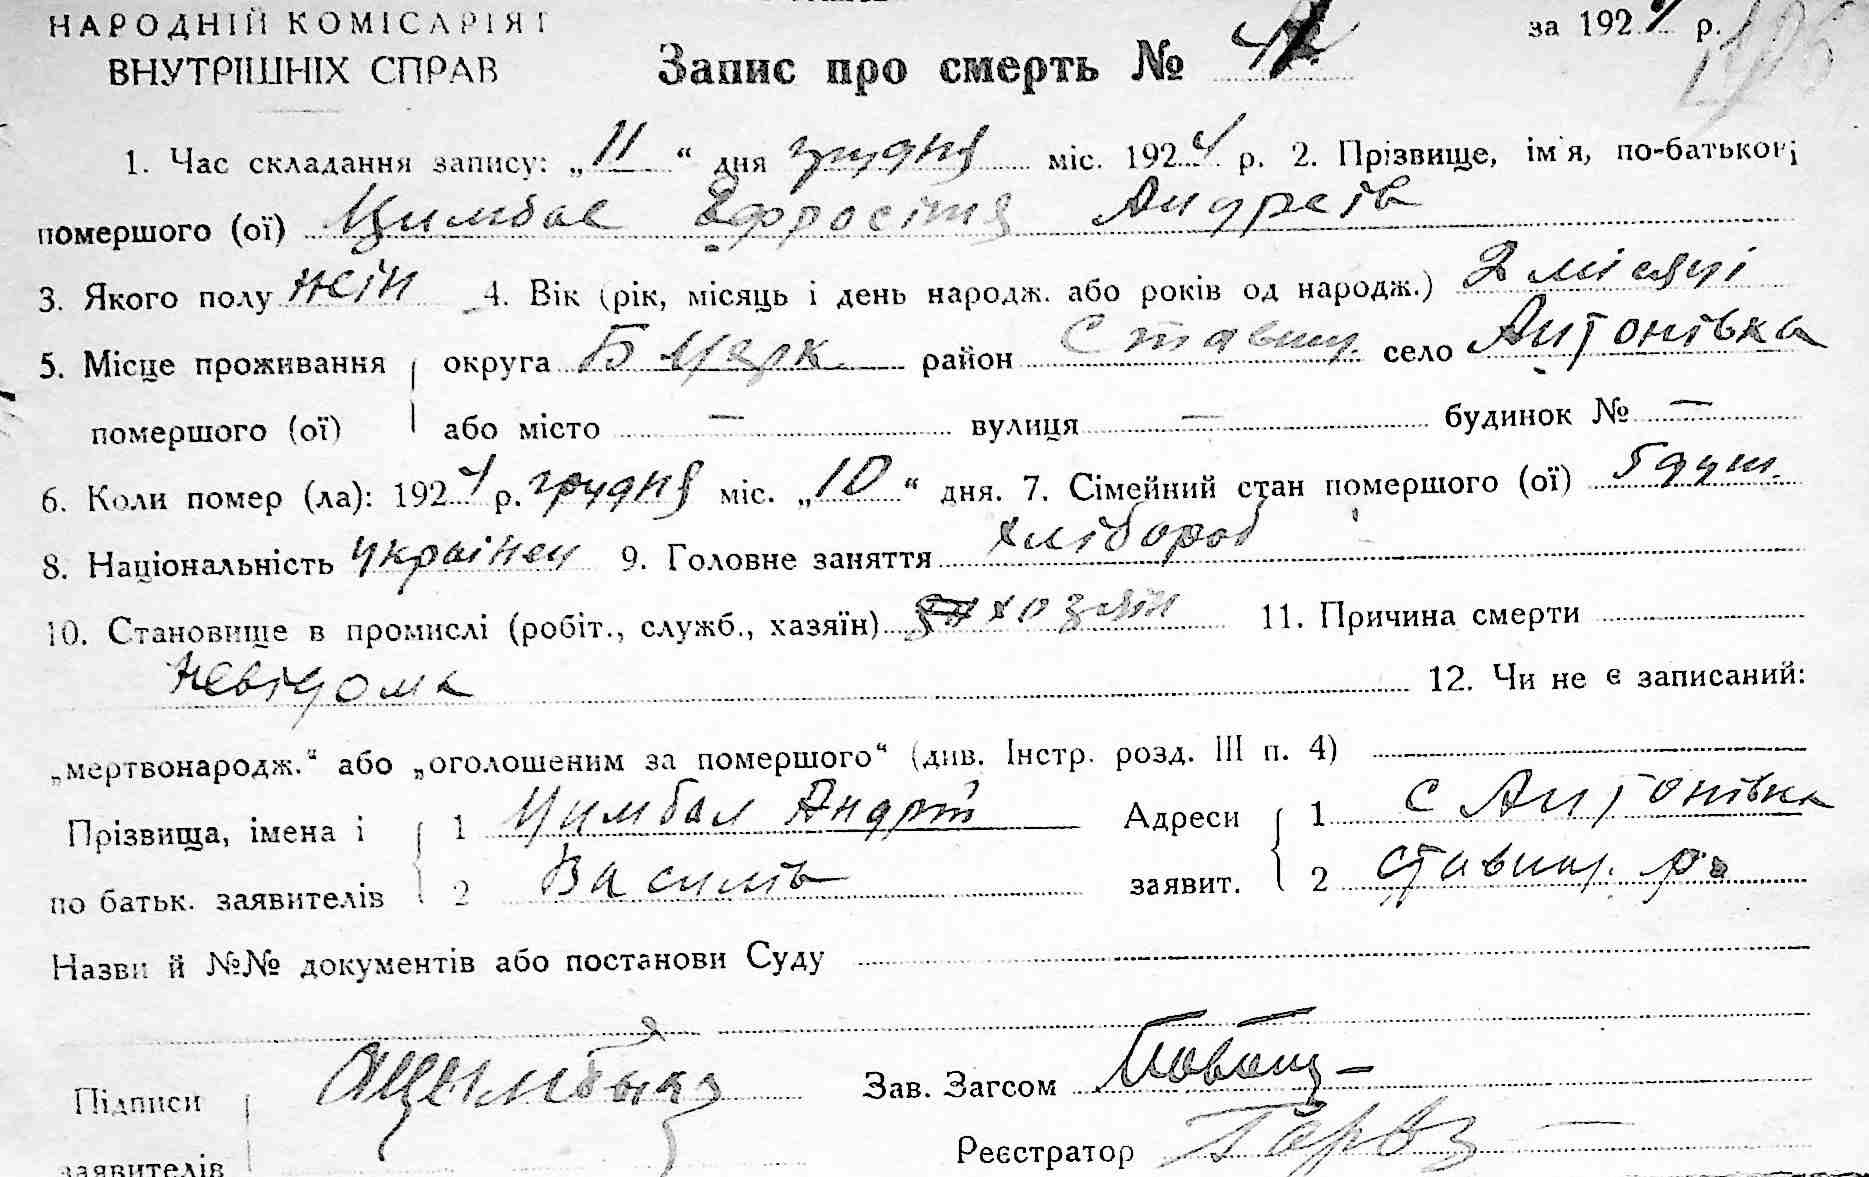 НАРОДНІЙ КОМІСАРІЯТ
ВНУТРІШНІХ СПРАВ
Запис про смерть №
за 1924 р.
1. Час складання запису: „11“ дня грудня міс. 1924 р. 2. Прізвище, ім'я, по-батькові
помершого (ої) Цимбал Єфросіня Андреїв
3. Якого полу жін 4. Вік (рік, місяць і день народж. або років од народж.) 2 місяці
5. Місце проживання округа Б Церк район Ставищ. село Антонівка
помершого (ої) або місто — вулиця — будинок № —
6. Коли помер (ла): 1924 р. грудня міс. „10“ дня. 7. Сімейний стан помершого (ої)
8. Національність українец 9. Головне заняття хлібороб
10. Становище в промислі (робіт., служб., хазяїн) хозяїн 11. Причина смерти
невідома 12. Чи не є записаний:
„мертвонародж.“ або „оголошеним за помершого“ (див. Інстр. розд. III п. 4)
Прізвища, імена і 1 Цимбал Андрій Адреси 1 с Антонівка
по батьк. заявителів 2 Василів заявит. 2 Ставищ. р-
Назви й №№ документів або постанови Суду
Підписи АЦымбал Зав. Загсом
заявителів Реєстратор